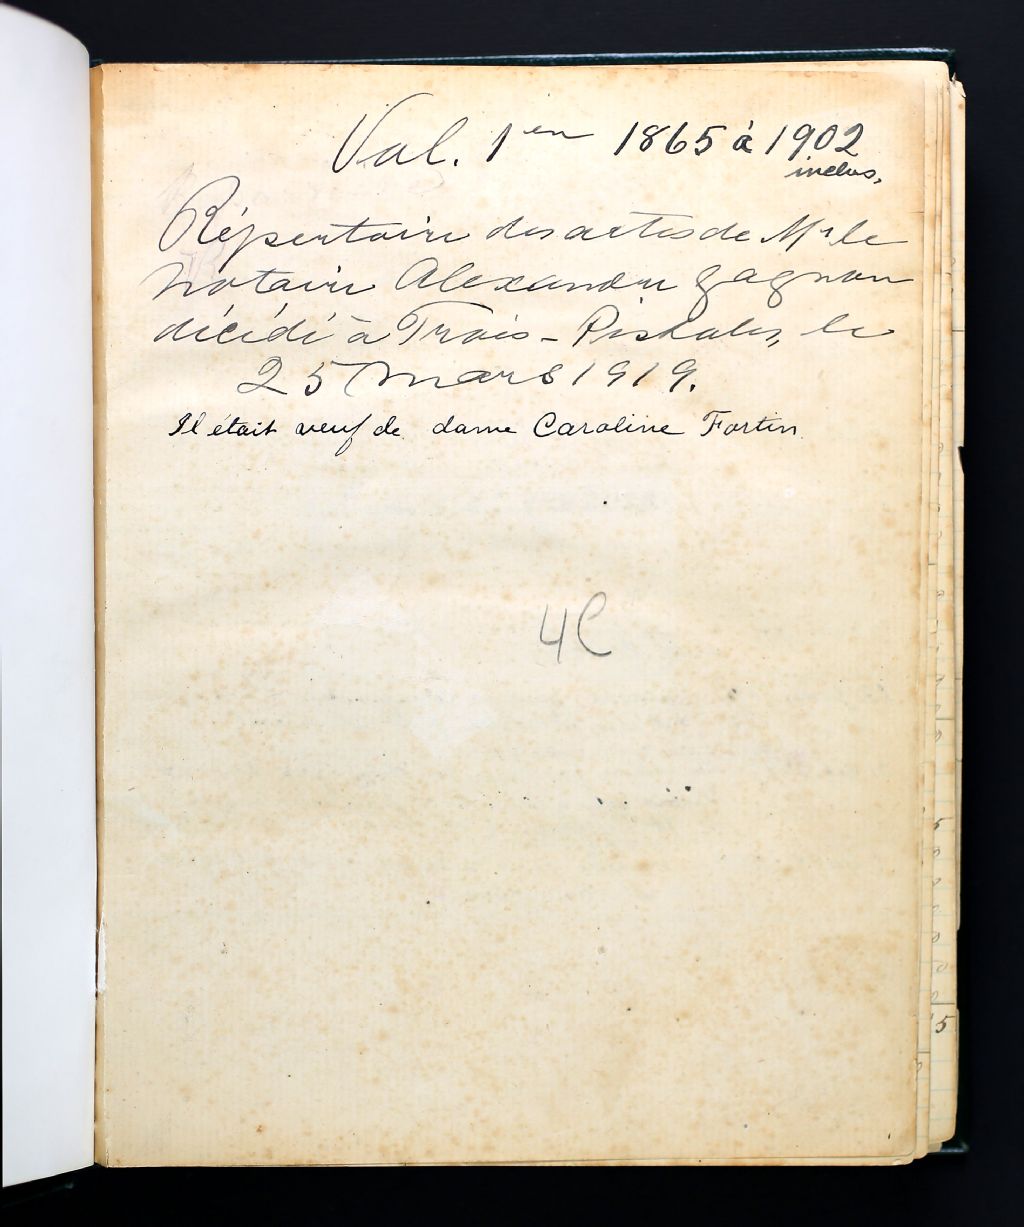 Vol. 1er 1865 à 1902
inclus,
Répertoire des actes de Mr le
notaire Alexandre Gagnon
décédé à Trois-Pistoles, le
25 Mars 1919.
Il était veuf de dame Caroline Fortin
4C
5